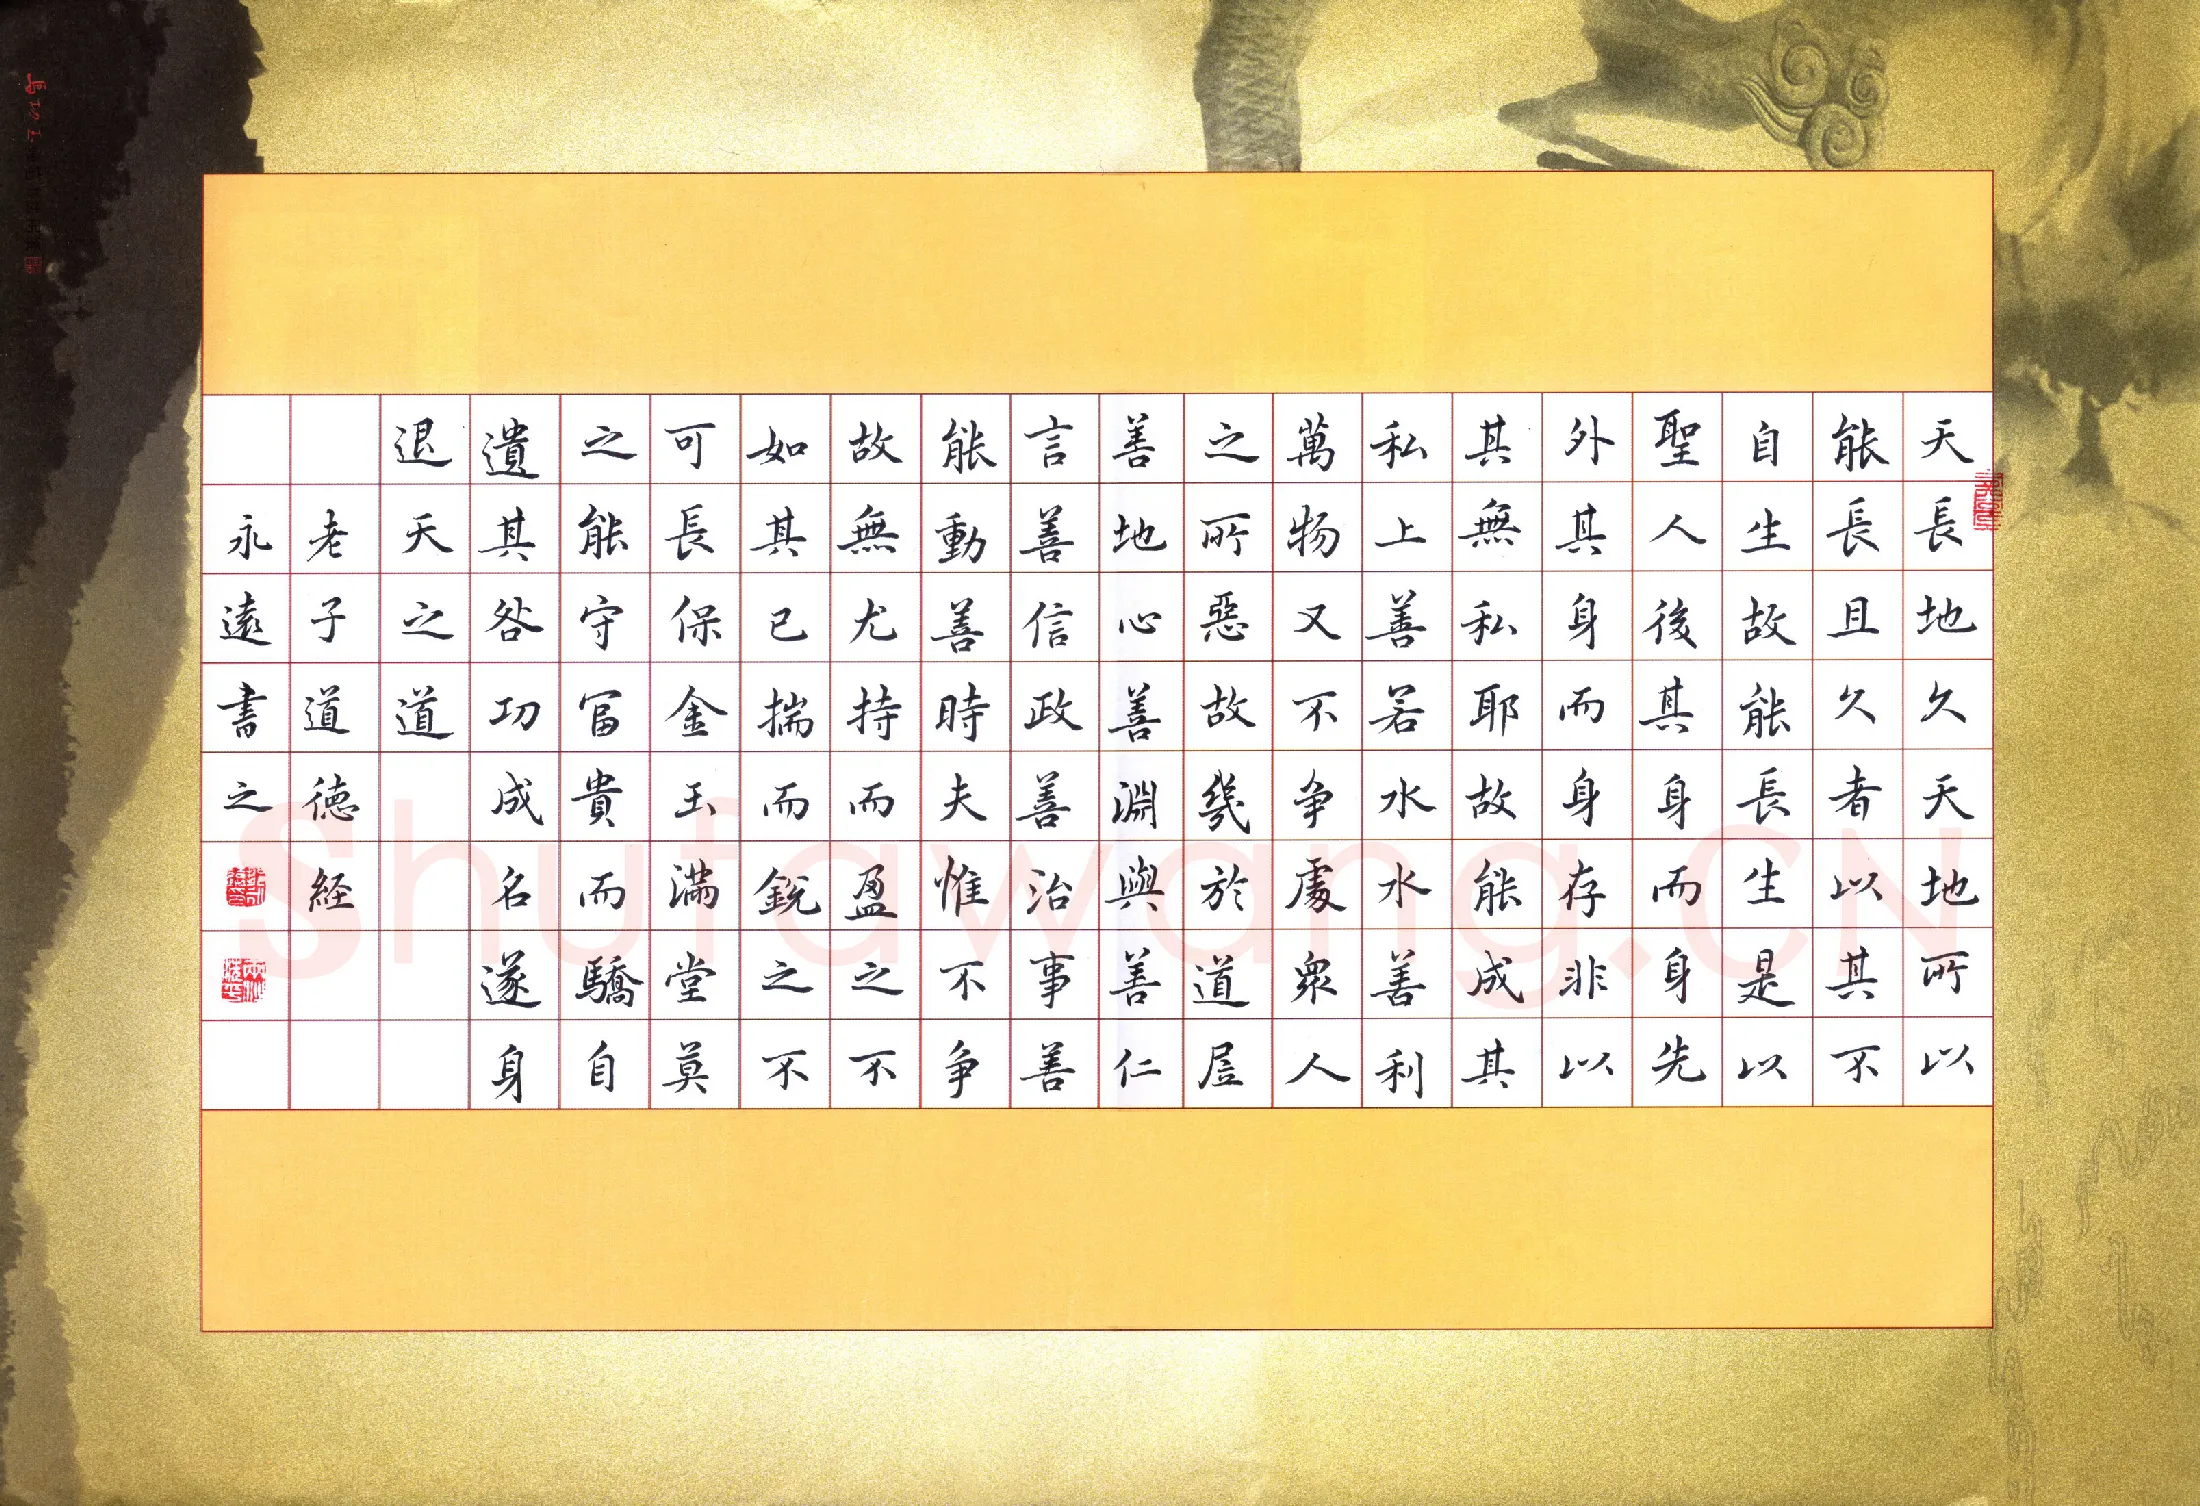 天長地久天地所以
能長且久者以其不
自生故能長生是以
聖人後其身而身先
外其身而身存非以
其無私耶故能成其
私上善若水水善利
萬物又不争處衆人
之所惡故幾於道居
善地心善淵與善仁
言善信政善治事善
能動善時夫惟不争
故無尤持而盈之不
如其已揣而銳之不
可長保金玉滿堂莫
之能守富貴而驕自
遺其咎功成名遂身
退天之道
老子道德経
永遠書之
Shufawang.CN